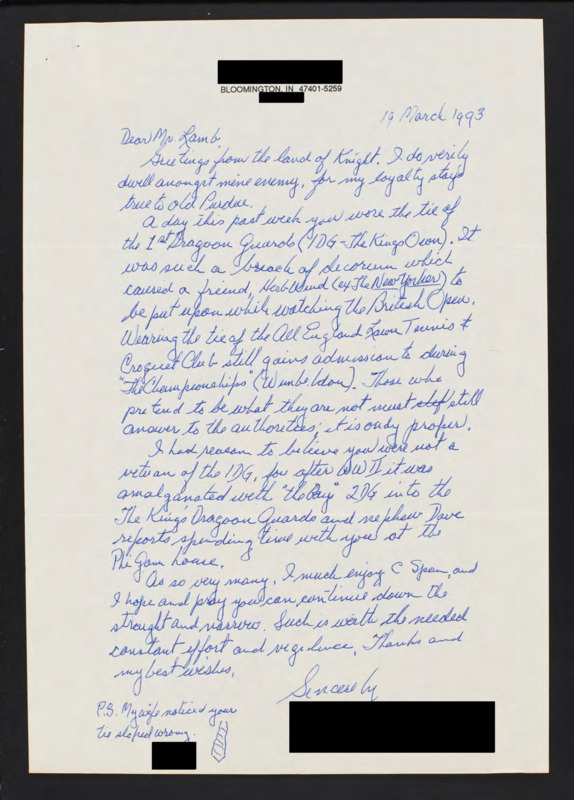 BLOOMINGTON, IN 47401-5259
19 March 1993
Dear Mr. Lamb,
Greetings from the land of Knight. I do verily
dwell amongst mine enemy, for my loyalty stays
true to old Purdue.
A day this past week you wore the tie of
the 1st Dragoon Guards (1DG - The Kings Own). It
was such a breach of decorum which
caused a friend, Herb Wind (ex The New Yorker) to
be put upon while watching the British Open.
Wearing the tie of the All England Lawn Tennis &
Croquet Club still gains admission to during
"The Championships" (Wimbeldon). Those who
pretend to be what they are not must still
answer to the authorities; it is only proper.
I had reason to believe you were not a
vetran of the 1DG, for after WW II it was
amalganated with "the Bays" 2DG into the
The King's Dragoon Guards and nephew Dave
reports spending time with you at the
Phi Gam house.
As so very many, I much enjoy C Span, and
I hope and pray you can continue down the
straught and narrow. Such is worth the needed
constant effort and vigilence. Thanks and
my best wishes,
Sincerely
P.S. My wife noticed your
tie sloped wrong.